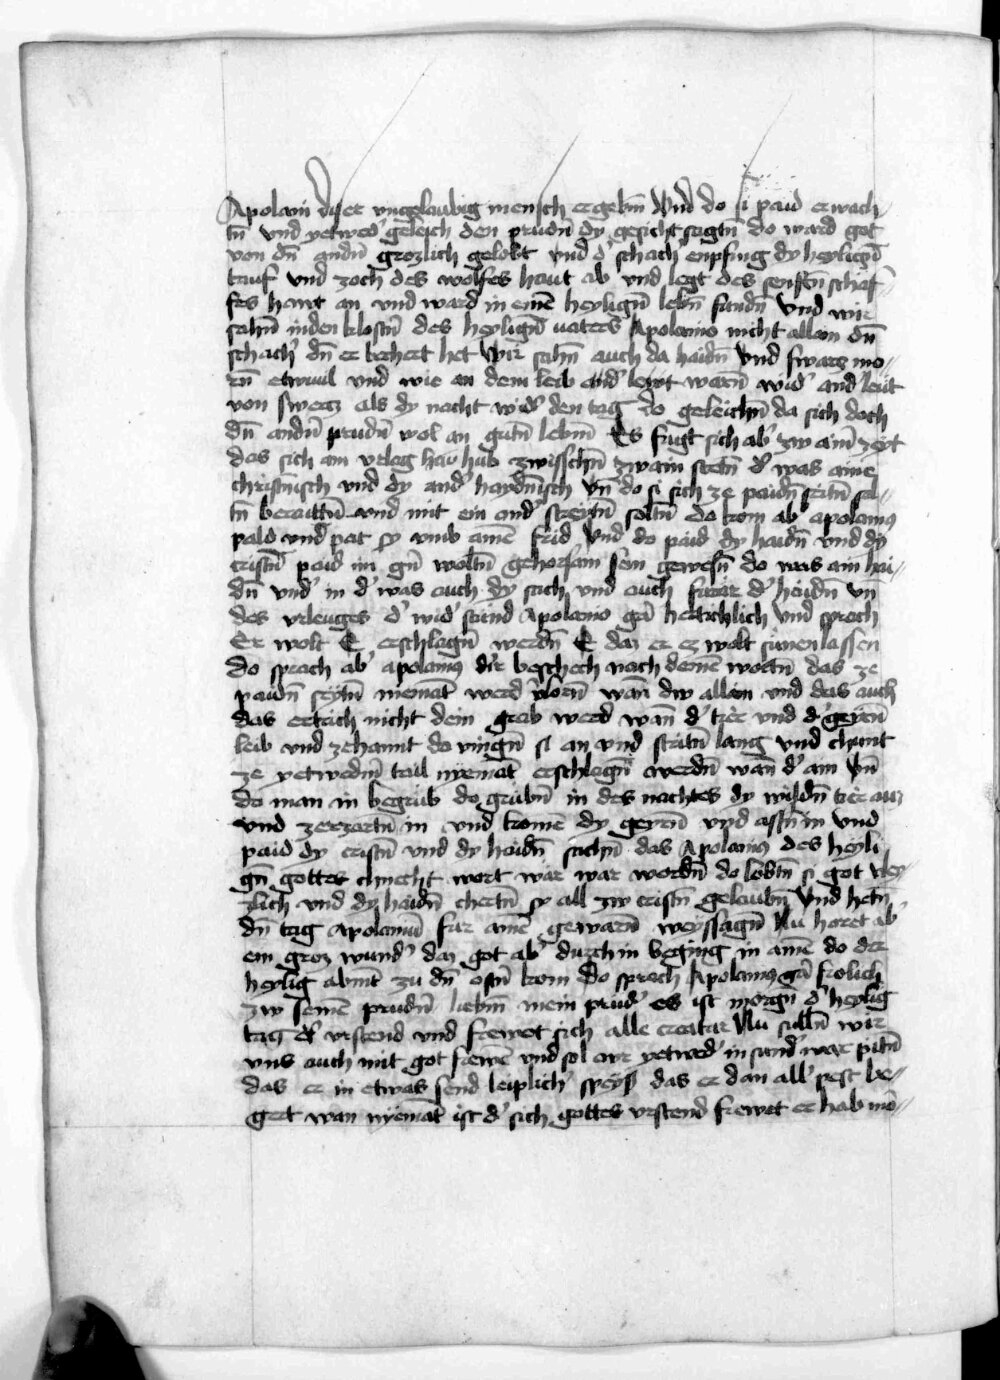 Apolam diser vngelaubig mensch ergebm Vnd do si paid erwach
tn vnd yetwed' geleich den prudn dy gesicht sagtn do ward got
von dn andn grozlich gelobt vnd d' schach enpfing dy heylign
tauf vnd zoch des wolfes haut ab vnd legt des senftn schaf
fes hawt an vnd ward in eine heylign lebn fundn Vnd wir
sahn in den klostn des heylign vaters Apolamo nicht allain dn
schach' dn er bechert het Wir sahn auch da haidn Vnd swarz mo
rn etwuil vnd wie an dem leib and' lewt warn wid' and' leut
von swercz als dy nacht wid' den tag do geleichn da sich doch
dn andn prudn wol an gutn lebm Es fugt sich ab' zw aim zeyt
das sich am vrlog hub zwisschn zwain stetn d' was aine
christnisch vnd dy and' haydnisch vn do si sich ze paidn seitn sel
tn beraittn vnd mit ein and' streytn soltn do kom ab' apolamus
pald vnd pat sy vmb ame frid Vnd do paid dy haidn vnd dy
cristn paid im gn woltn gehorsam sein gewesn do was ain hai
dn vnd' in d' was auch dy sach vnd auch furar d' heidn vn
des vrleuges d' wid' stund Apolamo gar herttichlich vnd sprach
Er wolt E erschlagn werdn E daz er ez wolt sunen lassen
do sprach ab' apolamus dir beschech nach deine wortn das ze
paidn seytn niemat werd vlorn wan dw allain vnd das auch
das ertrich nicht dein grab werd wan d' tier vnd d' geyrn
leib vnd zehannt do vingn si an vnd stritn lang vnd chomt
ze yetwedm tail nyemat erschlagn werdn wan d' am vn
do man in begrub do grubn in des nachtes dy wildn tier auz
vnd zerzartn in vnd kome dy geyrn vnd assn in vnd
paid dy cristn vnd dy haidn sachn das Apolamus des heyli
gn gottes chnecht wort war war wordn do lobtn si got vley
zlich vnd dy haidn chertn sy all zw cristn gelaubn Vnd hetn
dn tag Apolamu fur ame gewarn weyssagn Nu horet ab'
ein groz wund' daz got ab' durch in beging in ame do der
heylig abmt zu dn ostn kom Do sprach Apolamus gar frolich
zw seine prudn liebm mein prud' es ist morgn d' heylig
tag d' vrstend vnd frewet sich alle creatar Nu sulln wir
vns auch mit got frewe vnd sol wr yetwed' in sund' war pitn
das er in etwas send leiplich' speys das er dan all' pest be
gert wan nyemat ist d' sich gottes vrstend frewet er hab me